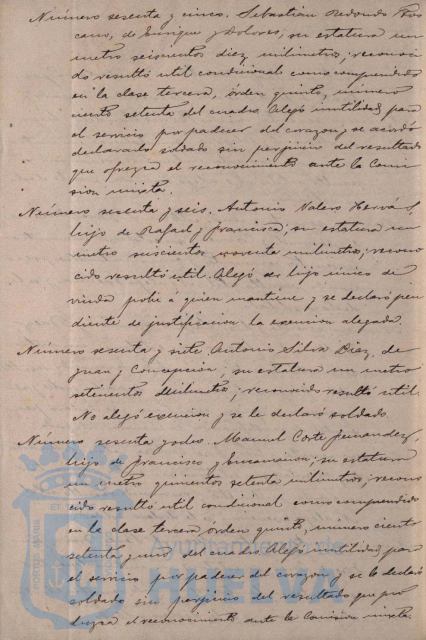 Número sesenta y cinco. Sebastian Redondo Tos
cano, de Enrique y Dolores, su estatura un
metro seiscientos diez milimetros; reconoci
do resultó util condicional como comprendido
en la clase tercera, órden quinto, número
ciento setenta del cuadro. Alegó inutilidad para
el servicio por padecer del corazon y se acordó
declararlo soldado sin perjuicio del resultado
que ofrezca el reconocimiento ante la Comi
sion mixta.
Número sesenta y seis. Antonio Valero Hervás,
hijo de Rafael y Francisca; su estatura un
metro seiscientos milimetros; recono
cido resultó util. Alegó ser hijo único de
viuda pobre á quien mantiene y se declaró pen
diente de justificacion la exencion alegada.
Número sesenta y siete Antonio Silva Diaz, de
Juan y Concepción, su estatura un metro
setecientos milimetros; reconocido resultó util.
No alegó exencion y se le declaró soldado.
Número sesenta y ocho. Manuel Corte Fernandez,
hijo de Francisco y Encarnacion; su estatura
un metro quinientos setenta milimetros; recono
cido resultó util condicional como comprendido
en la clase tercera, órden quinto, número ciento
setenta y uno del cuadro. Alegó inutilidad para
el servicio por padecer del corazon y se le declaró
soldado sin perjuicio del resultado que pro
duzca el reconocimiento ante la Comision mixta.
Ayuntamiento de
HUELVA